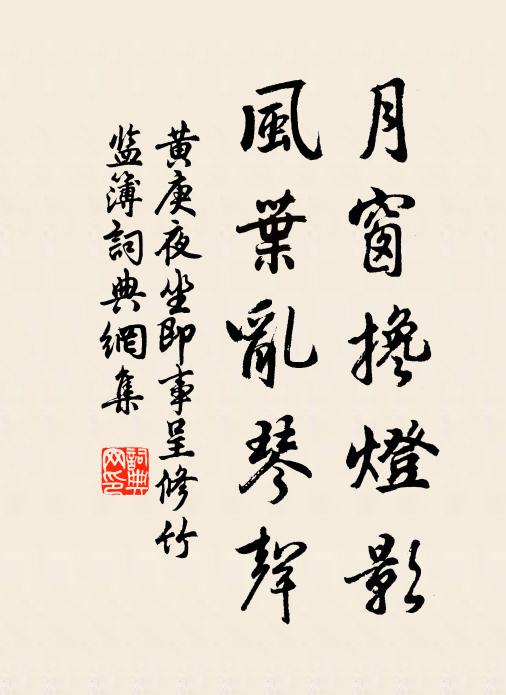 月窗搀燈影
風葉亂琴聲
黄庚夜坐即事呈修竹
监簿詞典網集
詞典网印